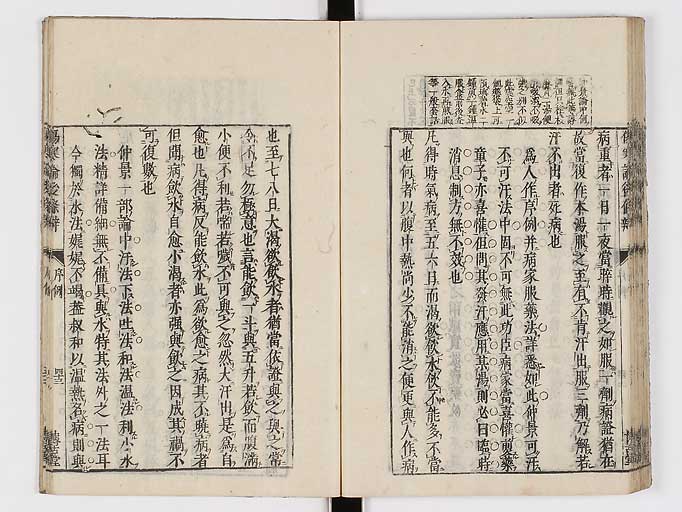 病重者一日一夜當晬時觀之如服一劑病證猶在
故當復作本湯服之至有不肯汗出服三劑乃解若
汗不出者死病也
爲人作序例并病家服藥法詳悉如此仲景可汗
不可汗法中固不可無此功臣病家當喜懼
童子亦喜懼但問其發汗應用其湯則必日臨時
消息制方無不效也
凡得時氣病至五六日而渴欲飲水飲不能多不當
與也何者以腹中熱尚少不能消之便更與人作病
也至七八日大渴欲飲水者猶當依證與之與之常
令不足勿極意也言能飲一斗與五升若飲而腹滿
小便不利若喘若噦不可與之忽然大汗出是爲自
愈也凡得病反能飲水此爲欲愈之病其不曉病者
但聞病飲水自愈小渴者亦强與飲之因成其禍不
可復數也
仲景一部論中汗法下法吐法和法溫法利小水
法精詳備細無不備具與水特其法外之一法耳
今獨於水法娓娓不竭蓋叔和以溫熱名病則與
序例